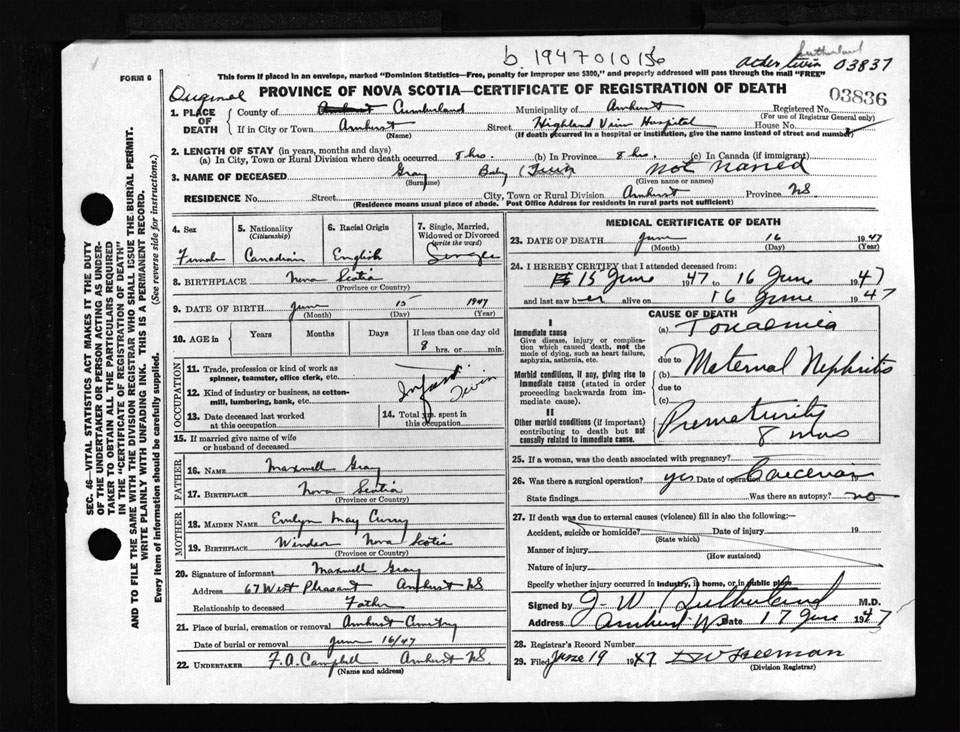 b. 194701015
Sutherland
other twin 03837
FORM 6
This form if placed in an envelope, marked "Dominion Statistics—Free, penalty for improper use $300," and properly addressed will pass through the mail "FREE"
Original
PROVINCE OF NOVA SCOTIA—CERTIFICATE OF REGISTRATION OF DEATH
03836
1. PLACE OF DEATH
County of Amherst Cumberland Municipality of Amherst Registered No.
(For use of Registrar General only)
If in City or Town Amherst Street Highland View Hospital House No.
(Name) (If death occurred in a hospital or institution, give the name instead of street and number)
2. LENGTH OF STAY (in years, months and days)
(a) In City, Town or Rural Division where death occurred 8 hrs. (b) In Province 8 hrs. (c) In Canada (if immigrant)
3. NAME OF DECEASED Gray Baby (Twin not named
(Surname) (Given name or names)
RESIDENCE No. Street City, Town or Rural Division Amherst Province NS
(Residence means usual place of abode. Post Office Address for residents in rural parts not sufficient)
SEC. 46—VITAL STATISTICS ACT MAKES IT THE DUTY
OF THE UNDERTAKER OR PERSON ACTING AS UNDER-
TAKER TO OBTAIN ALL THE PARTICULARS REQUIRED
IN THE "CERTIFICATE OF REGISTRATION OF DEATH"
AND TO FILE THE SAME WITH THE DIVISION REGISTRAR WHO SHALL ISSUE THE BURIAL PERMIT.
WRITE PLAINLY WITH UNFADING INK. THIS IS A PERMANENT RECORD.
Every item of information should be carefully supplied. (See reverse side for instructions.)
4. Sex
Female
5. Nationality
(Citizenship)
Canadian
6. Racial Origin
English
7. Single, Married,
Widowed or Divorced
(write the word)
Single
8. BIRTHPLACE Nova Scotia
(Province or Country)
9. DATE OF BIRTH June 15 1947
(Month) (Day) (Year)
10. AGE in
Years Months Days If less than one day old
8 hrs. or min.
OCCUPATION
11. Trade, profession or kind of work as
spinner, teamster, office clerk, etc.
12. Kind of industry or business, as cotton-
mill, lumbering, bank, etc.
Infant Twin
13. Date deceased last worked
at this occupation
14. Total yrs. spent in
this occupation
15. If married give name of wife
or husband of deceased
FATHER
16. NAME Maxwell Gray
17. BIRTHPLACE Nova Scotia
(Province or Country)
MOTHER
18. MAIDEN NAME Evelyn May Curry
19. BIRTHPLACE Windsor Nova Scotia
(Province or Country)
20. Signature of informant Maxwell Gray
Address 67 West Pleasant Amherst NS
Relationship to deceased Father
21. Place of burial, cremation or removal Amherst Cemetery
Date of burial or removal June 16/47
22. UNDERTAKER F. A. Campbell Amherst NS
(Name and address)
MEDICAL CERTIFICATE OF DEATH
23. DATE OF DEATH June 16 1947
(Month) (Day) (Year)
24. I HEREBY CERTIFY that I attended deceased from:
15 June 1947 to 16 June 1947
and last saw her alive on 16 June 1947
CAUSE OF DEATH
I
Immediate cause
Give disease, injury or complica-
tion which caused death, not the
mode of dying, such as heart failure,
asphyxia, asthenia, etc.
(a) Toxaemia
due to
Morbid conditions, if any, giving rise to
immediate cause (stated in order
proceeding backwards from im-
mediate cause).
(b) Maternal Nephritis
due to
(c)
II
Other morbid conditions (if important)
contributing to death but not
causally related to immediate cause.
Prematurity
8 mos
25. If a woman, was the death associated with pregnancy?
26. Was there a surgical operation? yes Date of operation Caecerian
State findings Was there an autopsy? no
27. If death was due to external causes (violence) fill in also the following:—
Accident, suicide or homicide? Date of injury 19
(State which)
Manner of injury
(How sustained)
Nature of injury
Specify whether injury occurred in industry, in home, or in public place
Signed by J W Sutherland M.D.
Address Amherst N.S. Date 17 June 1947
28. Registrar's Record Number
29. Filed June 19 1947 D W Freeman
(Division Registrar)